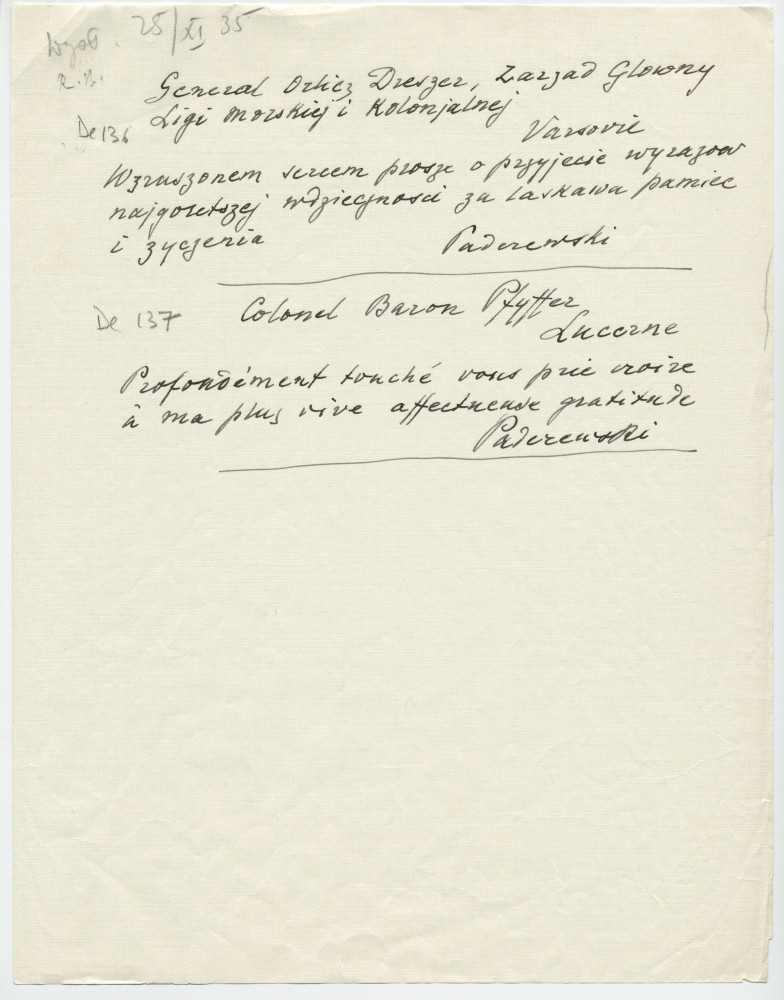 Wysł. 25/XI 35
R.B.
General Orlicz Dreszer, Zarzad Glowny
De 136 Ligi Morskiej i Kolonjalnej
Varsovie
Wzruszonem sercem prosze o przyjecie wyrazow
najgoretszej wdziecznosci za laskawa pamiec
i zyczenia Paderewski
De 137 Colonel Baron Pfyffer
Lucerne
Profondément touché vous prie croire
à ma plus vive affectueuse gratitude
Paderewski